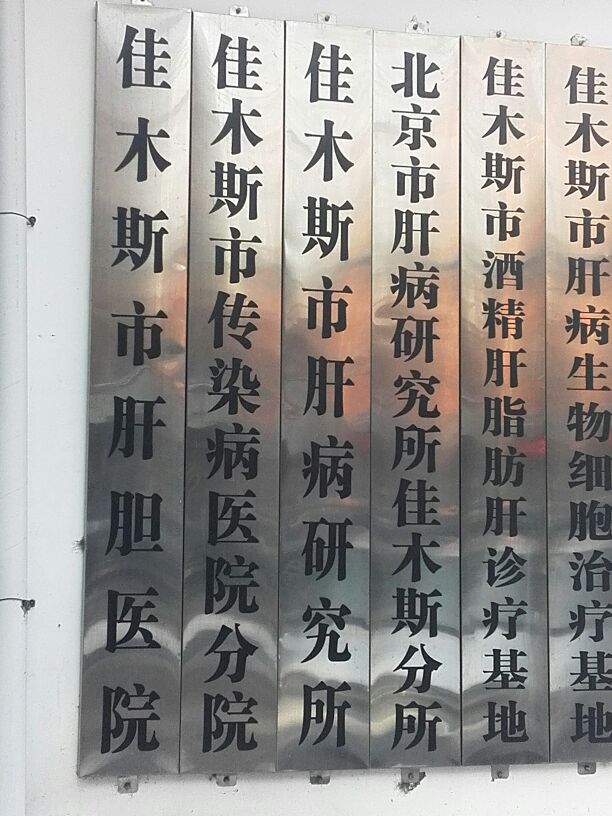 佳木斯市肝胆医院
佳木斯市传染病医院分院
佳木斯市肝病研究所
北京市肝病研究所佳木斯分所
佳木斯市酒精肝脂肪肝诊疗基地
佳木斯市肝病生物细胞治疗基地